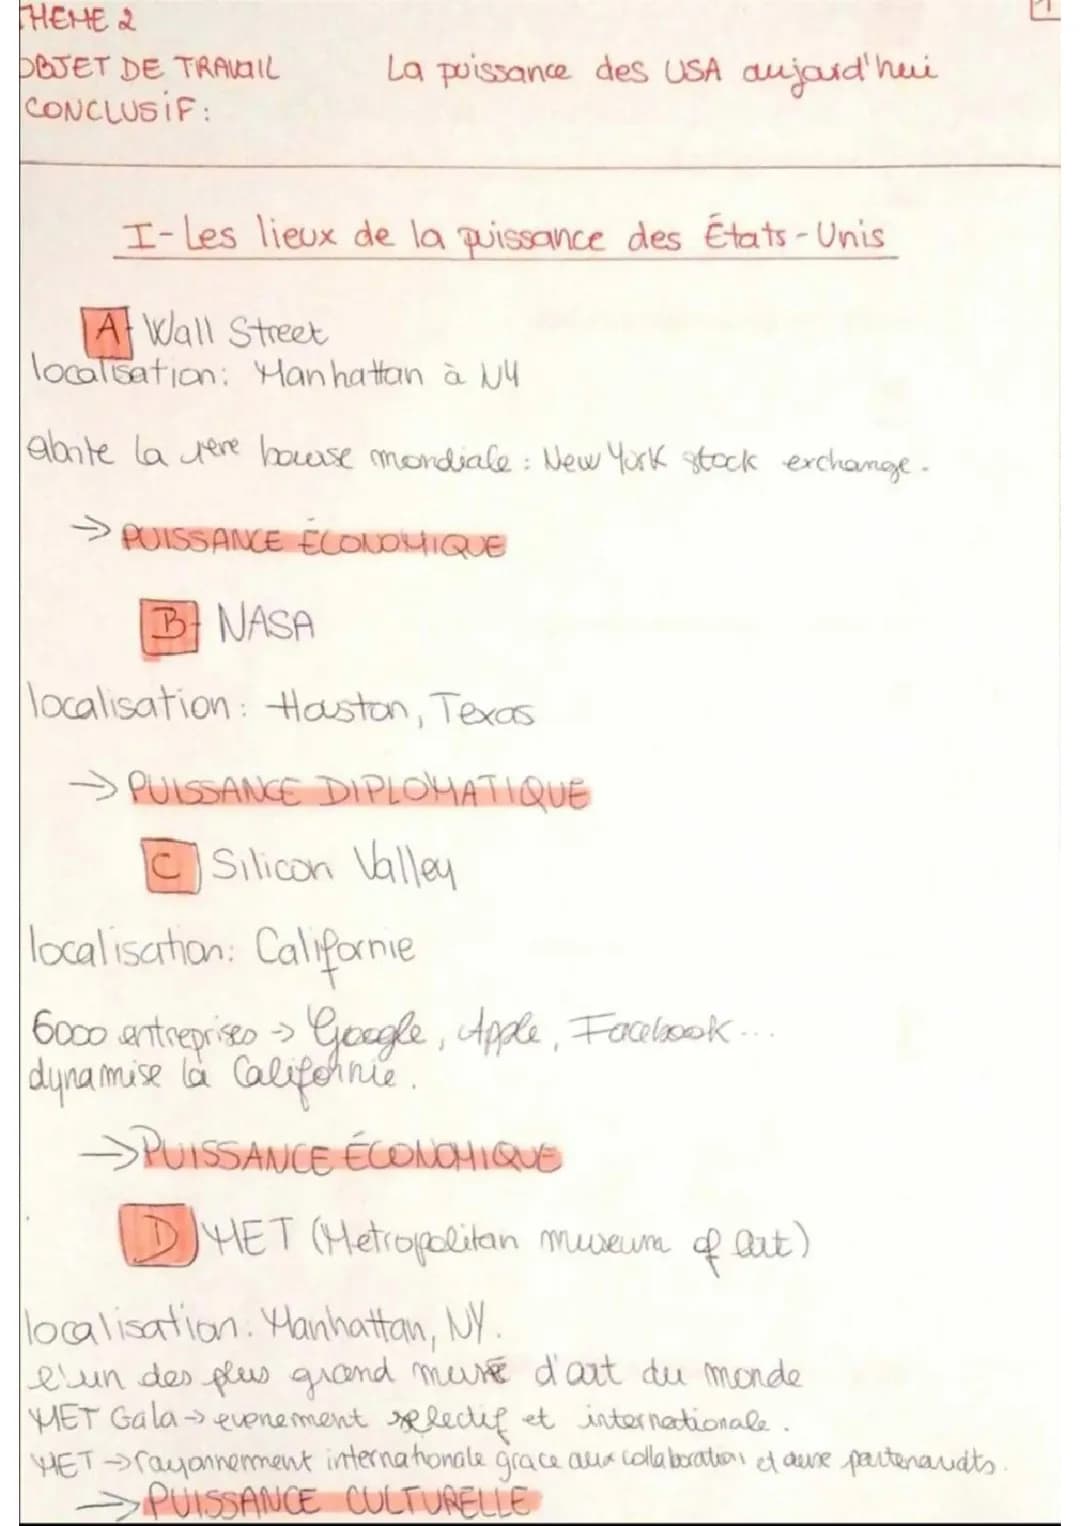 THEME 2
1
OBJET DE TRAVAIL La puissance des USA aujourd'hui
CONCLUSIF :
I - Les lieux de la puissance des États-Unis
A- Wall Street
localisation: Manhattan à NY
abrite la 1ère bourse mondiale : New York stock exchange.
→ PUISSANCE ÉCONOMIQUE
B- NASA
localisation: Houston, Texas
→ PUISSANCE DIPLOMATIQUE
C Silicon Valley
localisation: Californie
6000 entreprises → Google, Apple, Facebook...
dynamise la Californie.
→ PUISSANCE ÉCONOMIQUE
D MET (Metropolitan museum of art)
localisation: Manhattan, NY.
l'un des plus grand musé d'art du monde
MET Gala → evenement selectif et internationale.
MET → rayonnement internationale grace aux collaborations et aux partenariats.
→ PUISSANCE CULTURELLE